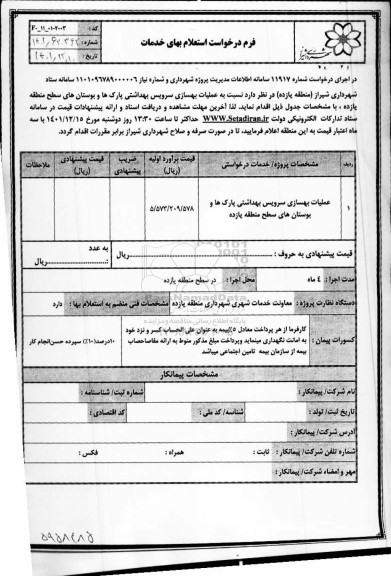 فرم درخواست استعلام بهای خدمات
کد : F-۱۱-۰۱۰۲-۰۰۳
شماره :
تاریخ :
در اجرای درخواست شماره ۱۱۹۱۷ سامانه اطلاعات مدیریت پروژه شهرداری و شماره نیاز ۱۱۰۱۰۹۶۷۸۹۰۰۰۰۰۶ سامانه ستاد
شهرداری شیراز (منطقه یازده) در نظر دارد نسبت به عملیات بهسازی سرویس بهداشتی پارک ها و بوستان های سطح منطقه
یازده ، با مشخصات جدول ذیل اقدام نماید. لذا آخرین مهلت مشاهده و دریافت اسناد و ارائه پیشنهادات قیمت در سامانه
ستاد تدارکات الکترونیکی دولت WWW.Setadiran.ir حداکثر تا ساعت ۱۳:۳۰ روز دوشنبه مورخ ۱۴۰۱/۱۲/۱۵ با سه
ماه اعتبار قیمت به این منطقه اعلام فرمایید، تا در صورت صرفه و صلاح شهرداری شیراز برابر مقررات اقدام گردد.
ردیف مشخصات پروژه/ خدمات درخواستی قیمت برآورد اولیه (ریال) ضریب پیشنهادی قیمت پیشنهادی (ریال) ملاحظات
۱ عملیات بهسازی سرویس بهداشتی پارک ها و بوستان های سطح منطقه یازده ۵/۵۷۳/۲۰۹/۵۷۸
قیمت پیشنهادی به حروف : ریال
به عدد : ریال
مدت اجرا : ۴ ماه محل اجرا : در سطح منطقه یازده
دستگاه نظارت پروژه : معاونت خدمات شهری شهرداری منطقه یازده مشخصات فنی منضم به استعلام بها : دارد
کسورات پیمان :
کارفرما از هر پرداخت معادل ۵٪ بیمه به عنوان علی الحساب کسر و نزد خود
به امانت نگهداری مینماید وپرداخت مبلغ مذکور منوط به ارائه مفاصاحساب
بیمه از سازمان بیمه تامین اجتماعی میباشد
۱۰درصد(۱۰٪) سپرده حسن انجام کار
مشخصات پیمانکار
نام شرکت/ پیمانکار : شماره ثبت/ شناسنامه :
تاریخ ثبت/ تولد : شناسه/ کد ملی : کد اقتصادی :
آدرس شرکت/ پیمانکار :
شماره تلفن شرکت/ پیمانکار : ثابت : همراه : فکس :
مهر و امضاء شرکت/ پیمانکار :